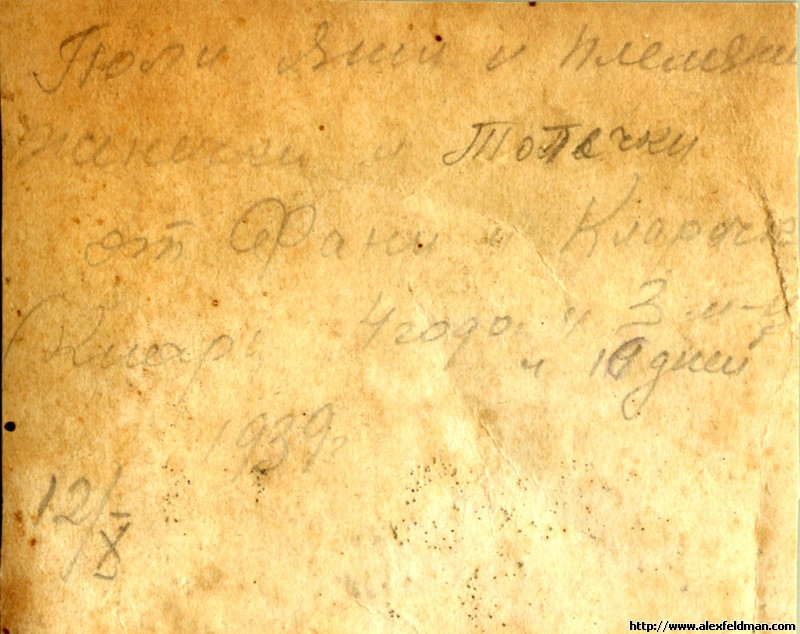 Поли Яши и племян
Жанички и Топочки
от Фани и Кларочки
(Клар. 4 года и 3 м-ца
и 10 дней
1939г
12/X
http://www.alexfeldman.com